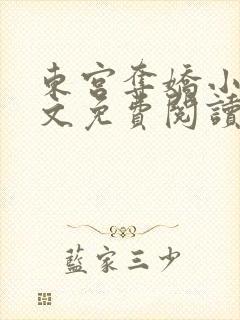 東宮奪嬌小
文免費閱讀
藍家三少